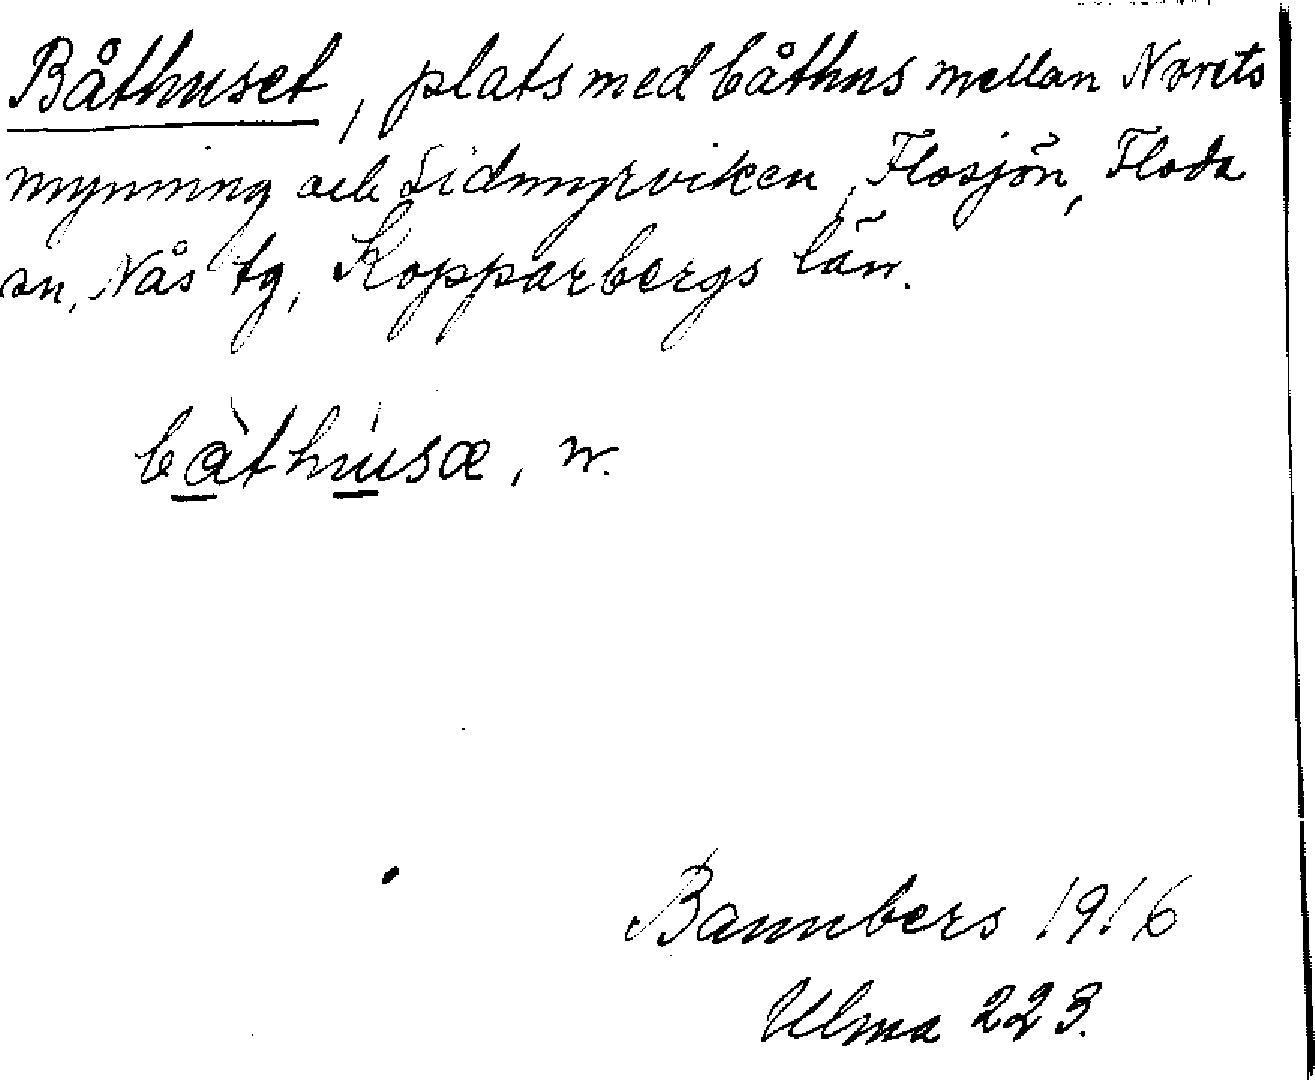 Båthuset, plats med båthus mellan Norets
mynning och Lidmyrviken, Flosjön, Floda
sn, Nås tg, Kopparbergs län.
bàthúsæ, n.
Bannbers 1916
Ulma 223.